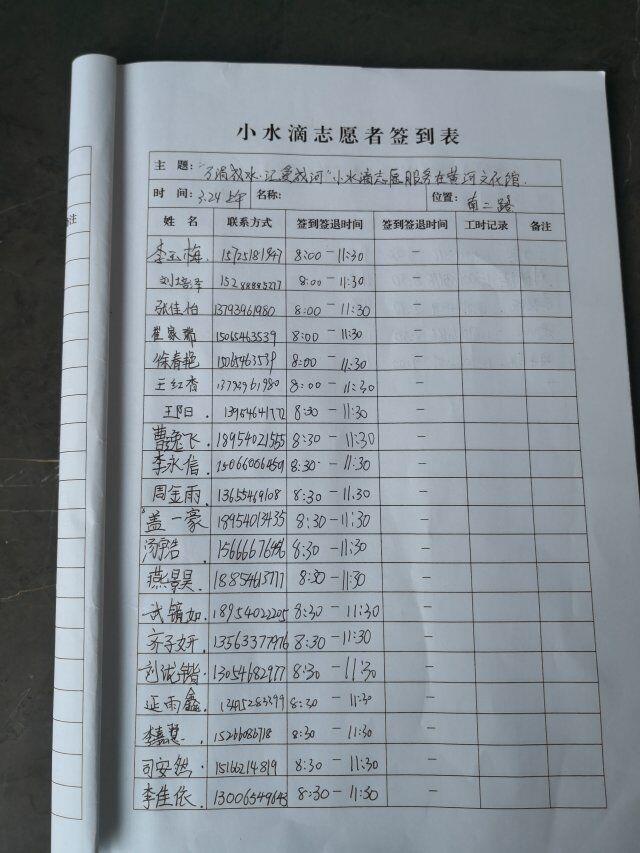 小水滴志愿者签到表
主 题: 小水滴志愿服务在黄河文化馆.
时 间: 3.24上午 名称: 位置: 南二路
姓 名 联系方式 签到签退时间 签到签退时间 工时记录 备注
李玉梅. 15725181947 8:00-11:30 -
刘 8:00-11:30 -
张佳怡 13793961980 8:00-11:30 -
崔家瑞 15065463539 8:00-11:30 -
徐春艳 15065463539 8:00-11:30 -
王红香 13793961980 8:00-11:30 -
王阳. 13954641772 8:30-11:30 -
曹逸飞. 18954021555 8:30-11:30 -
李永信. 15066006459 8:30-11:30 -
周金雨. 13655469108 8:30-11:30 -
盖一豪 18954013435 8:30-11:30 -
8:30-11:30 -
燕景昊. 18854613777 8:30-11:30 -
武镜如. 18954022205 8:30-11:30 -
齐子妍. 13563377976 8:30-11:30 -
刘 13054682977 8:30-11:30 -
延雨鑫. 8:30-11:30 -
李 8:30-11:30 -
司安然. 15166214819 8:30-11:30 -
李佳依. 13006549643 8:30-11:30 -
注